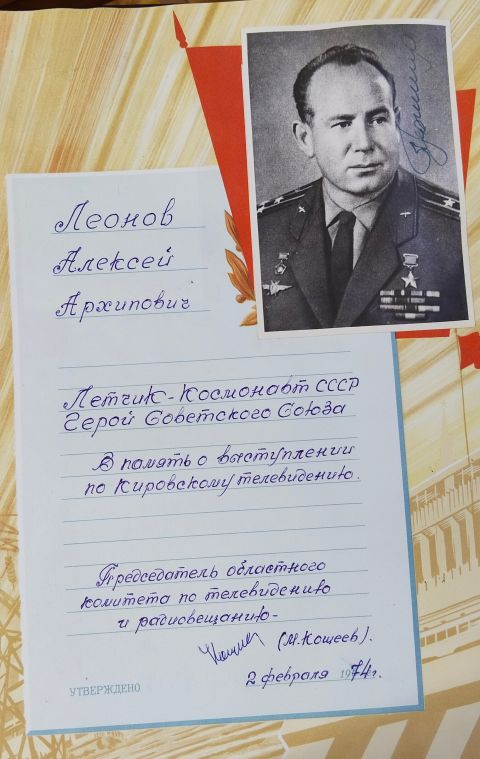 Леонов
Алексей
Архипович
Летчик-Космонавт СССР
Герой Советского Союза
В память о выступлении
по Кировскому телевидению.
Председатель областного
комитета по телевидению
и радиовещанию-
(М.Кощеев).
2 февраля 1974г.
УТВЕРЖДЕНО